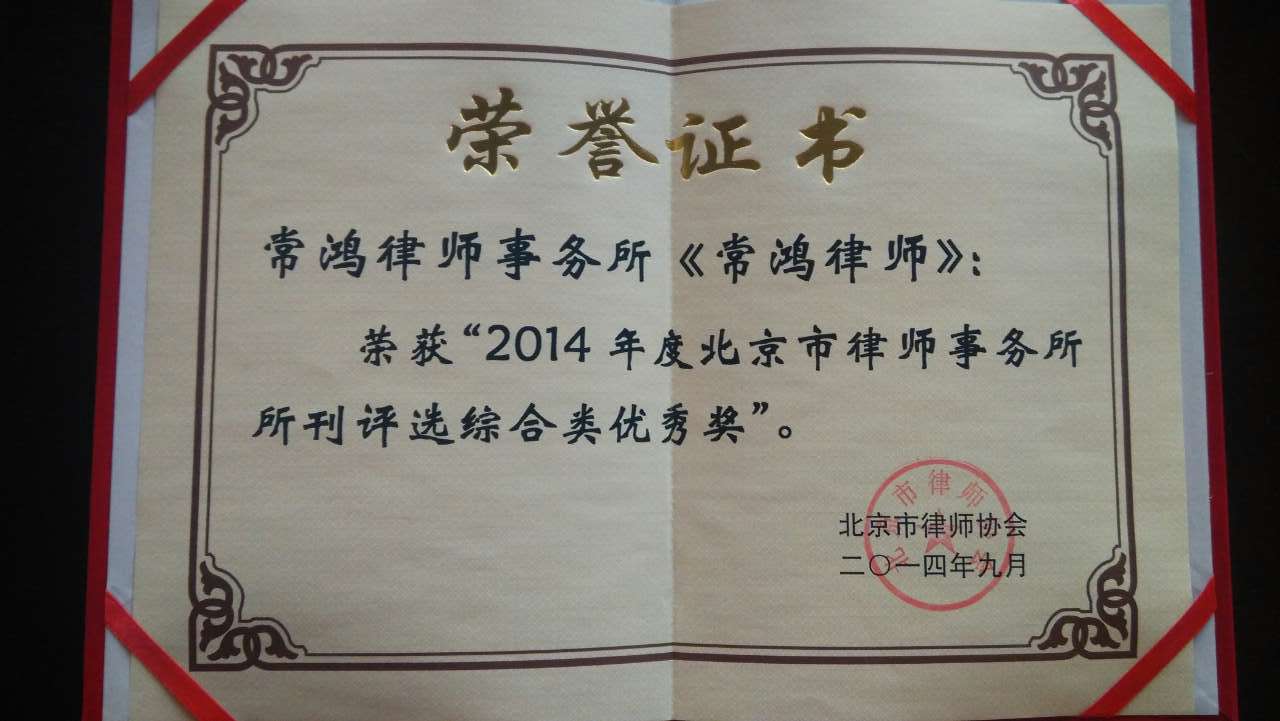 荣誉证书
常鸿律师事务所《常鸿律师》：
荣获“2014年度北京市律师事务所
所刊评选综合类优秀奖”。
北京市律师协会
二〇一四年九月
北京市律师协会